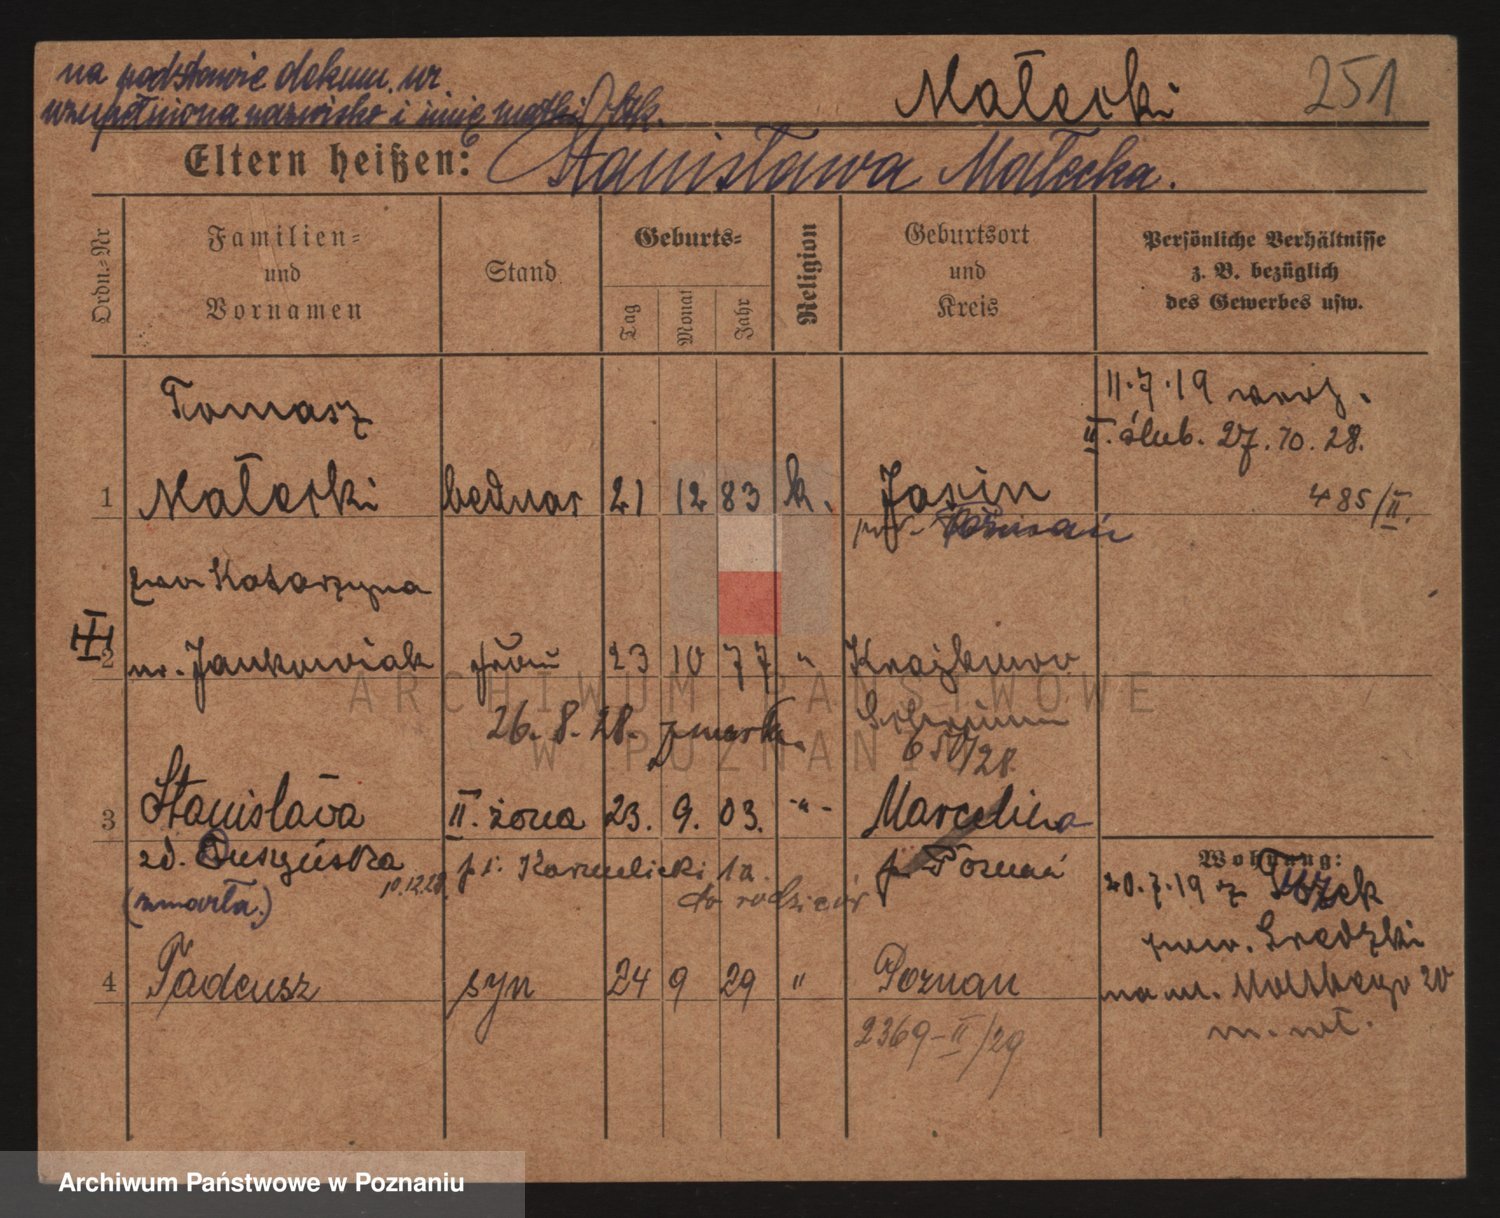 na podstawie dokum. ur.
uzupełniona nazwisko i imię matki
Małecki 251
Eltern heißen: Stanisława Małecka.
Ordn.-Nr
Familien- und Vornamen
Stand
Geburts-
Tag Monat Jahr
Religion
Geburtsort und Kreis
Persönliche Verhältnisse z. B. bezüglich des Gewerbes usw.
Tomasz
11.7.19
II. ślub. 27.10.28.
1 Małecki bednar 21 12 83 k. Jasin
485/II.
Poznań
Katarzyna
2 ur. Jankowiak 23 10 77 "
26.8.28. zmarła.
3 Stanisława II. żona 23. 9. 03. -"- Marcelina
zd. 10.12.28 do rodziców p. Poznań
(zmarła.)
Wohnung:
20.7.19 z
pow. Średzki
na ul. 20
4 Tadeusz syn 24 9 29 " Poznan
2369-II/29
ARCHIWUM PAŃSTWOWE
W POZNANIU
Archiwum Państwowe w Poznaniu